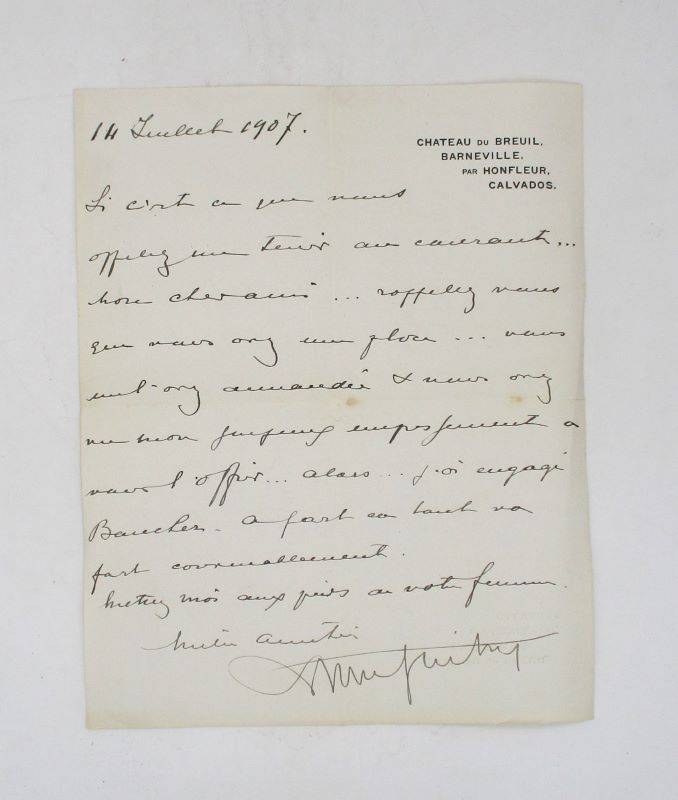 14 Juillet 1907.
CHATEAU DU BREUIL,
BARNEVILLE,
PAR HONFLEUR,
CALVADOS.
Si c'est ce que vous
appelez me tenir au courant...
mon cher ami... rappelez vous
que vous avez une place... vous
me l'avez demandée & vous avez
vu mon empressement à
vous l'offrir... alors... j'ai engagé
à part ça tout va
fort convenablement.
Mettez moi aux pieds de votre femme.
Mille amitiés